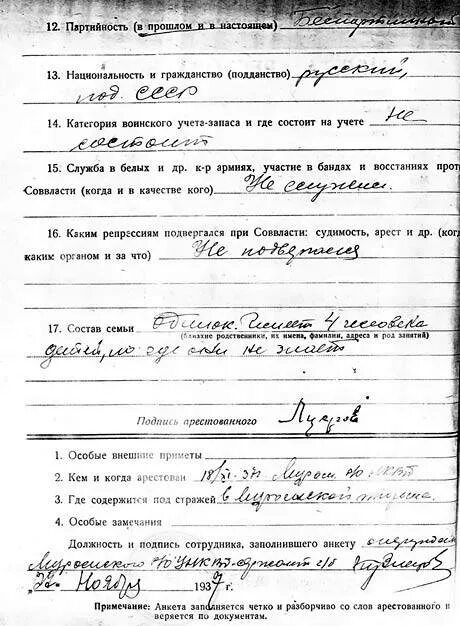 12. Партийность (в прошлом и в настоящем) Беспартийный
13. Национальность и гражданство (подданство) русский,
под. СССР
14. Категория воинского учета-запаса и где состоит на учете Не
состоит
15. Служба в белых и др. к-р армиях, участие в бандах и восстаниях прот
Соввласти (когда и в качестве кого) Не служил.
16. Каким репрессиям подвергался при Соввласти: судимость, арест и др. (ког
каким органом и за что) Не подвергался
17. Состав семьи одинок. Имеет 4 человека
(близкие родственники, их имена, фамилии, адреса и род занятий)
детей, но где они не знает
Подпись арестованного
1. Особые внешние приметы
2. Кем и когда арестован 18/XI-37 Муром. Р/О НКВД
3. Где содержится под стражей в Муромской тюрьме.
4. Особые замечания
Должность и подпись сотрудника, заполнившего анкету
Муромского Р/О УНКВД-сержант г/б
"22" Ноября 1937 г.
Примечание: Анкета заполняется четко и разборчиво со слов арестованного и
веряется по документам.